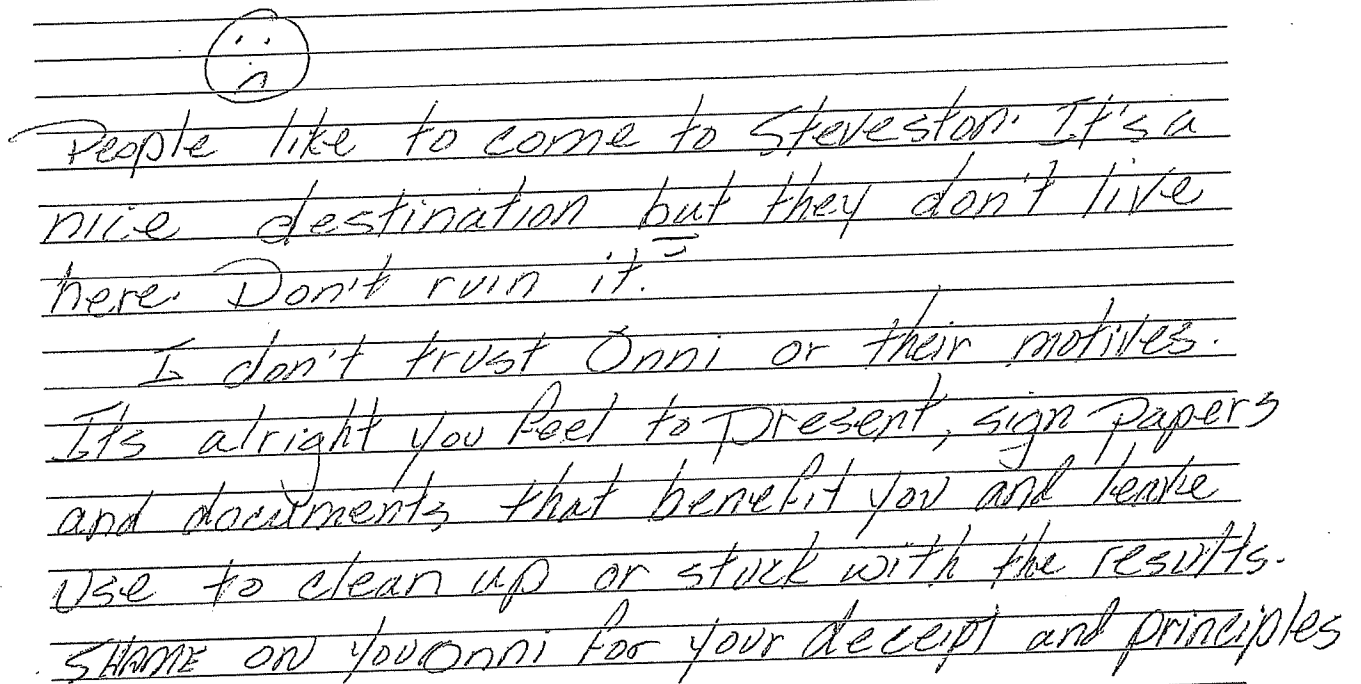 People like to come to Steveston. It's a
nice destination but they don't live
here. Don't ruin it.
I don't trust Onni or their motives.
Its alright you feel to present, sign papers
and documents that benefit you and leave
use to clean up or stuck with the results.
SHAME ON YOU Onni for your deceipt and principles